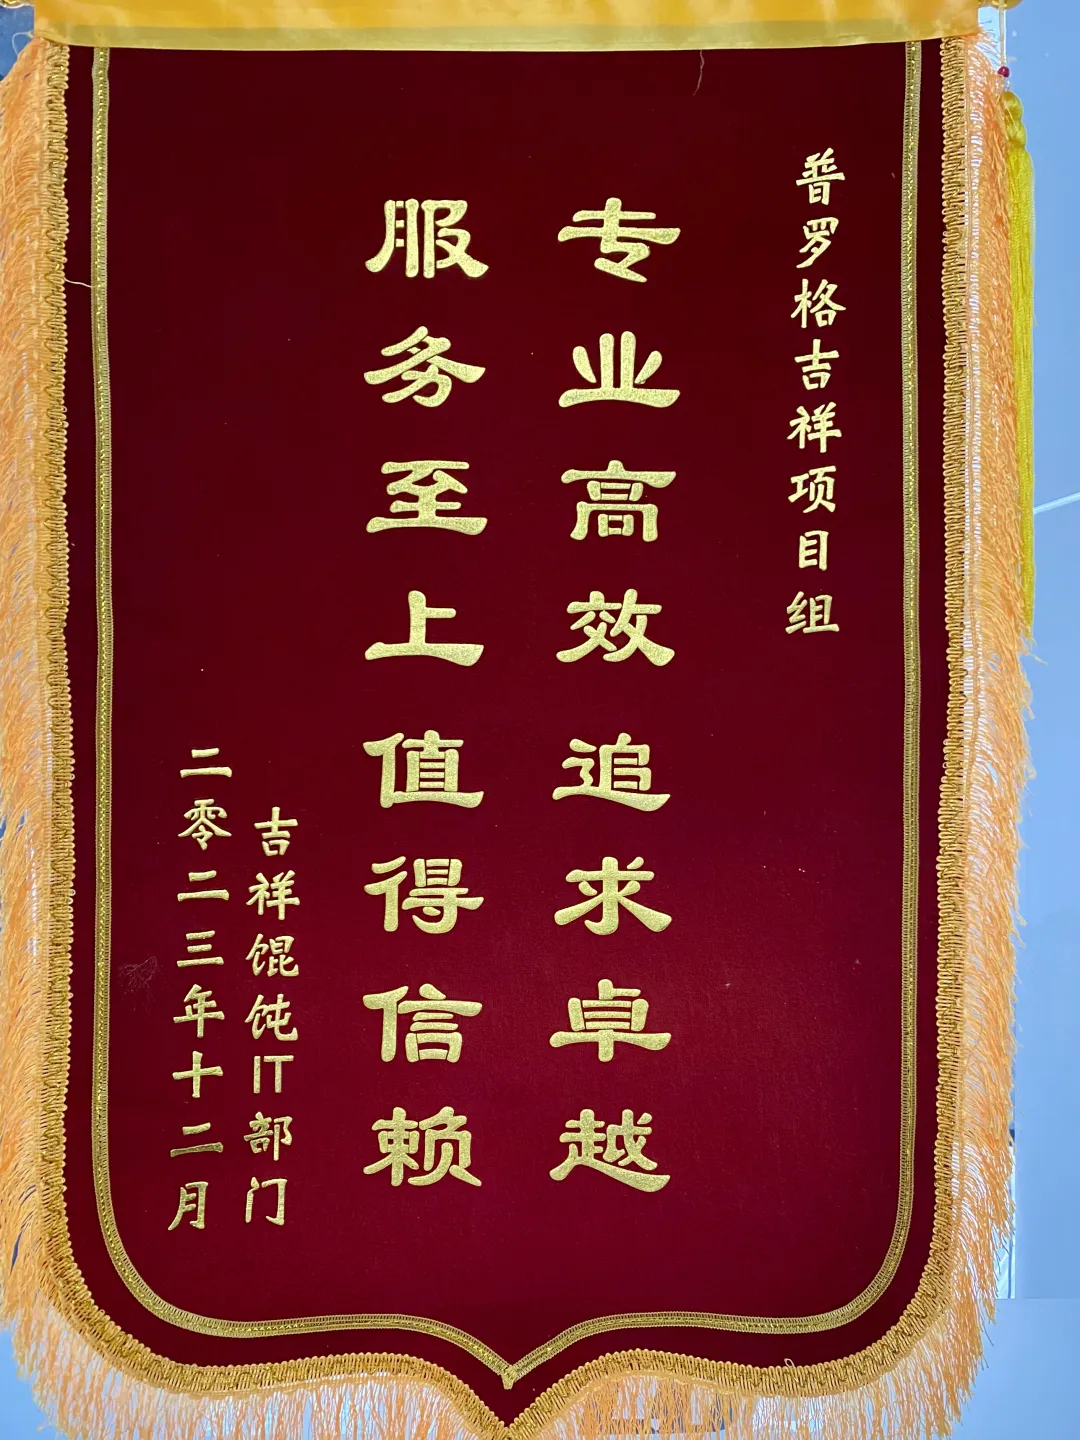 普罗格吉祥项目组
专业高效追求卓越
服务至上值得信赖
吉祥馄饨IT部门
二零二三年十二月